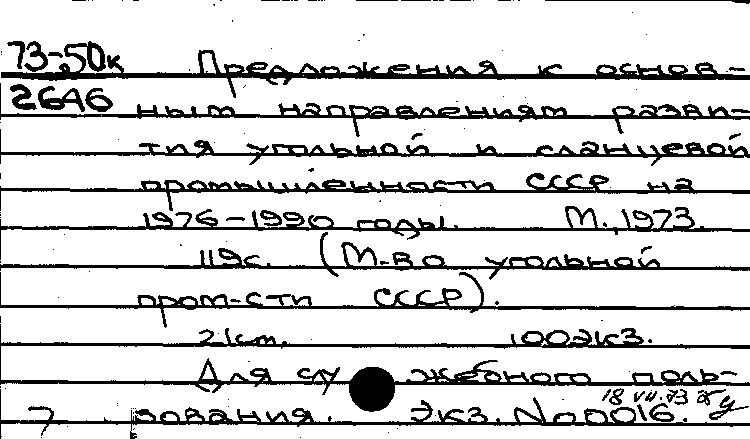 73-50к Предложения к основ-
2646 ным направлениям разви-
тия угольной и сланцевой
промышленности СССР на
1976-1990 годы. М., 1973.
119с. (М-во угольной
пром-сти СССР).
21см. 100экз.
Для служебного поль-
18 VII.73
зования. Экз. №00016.
7